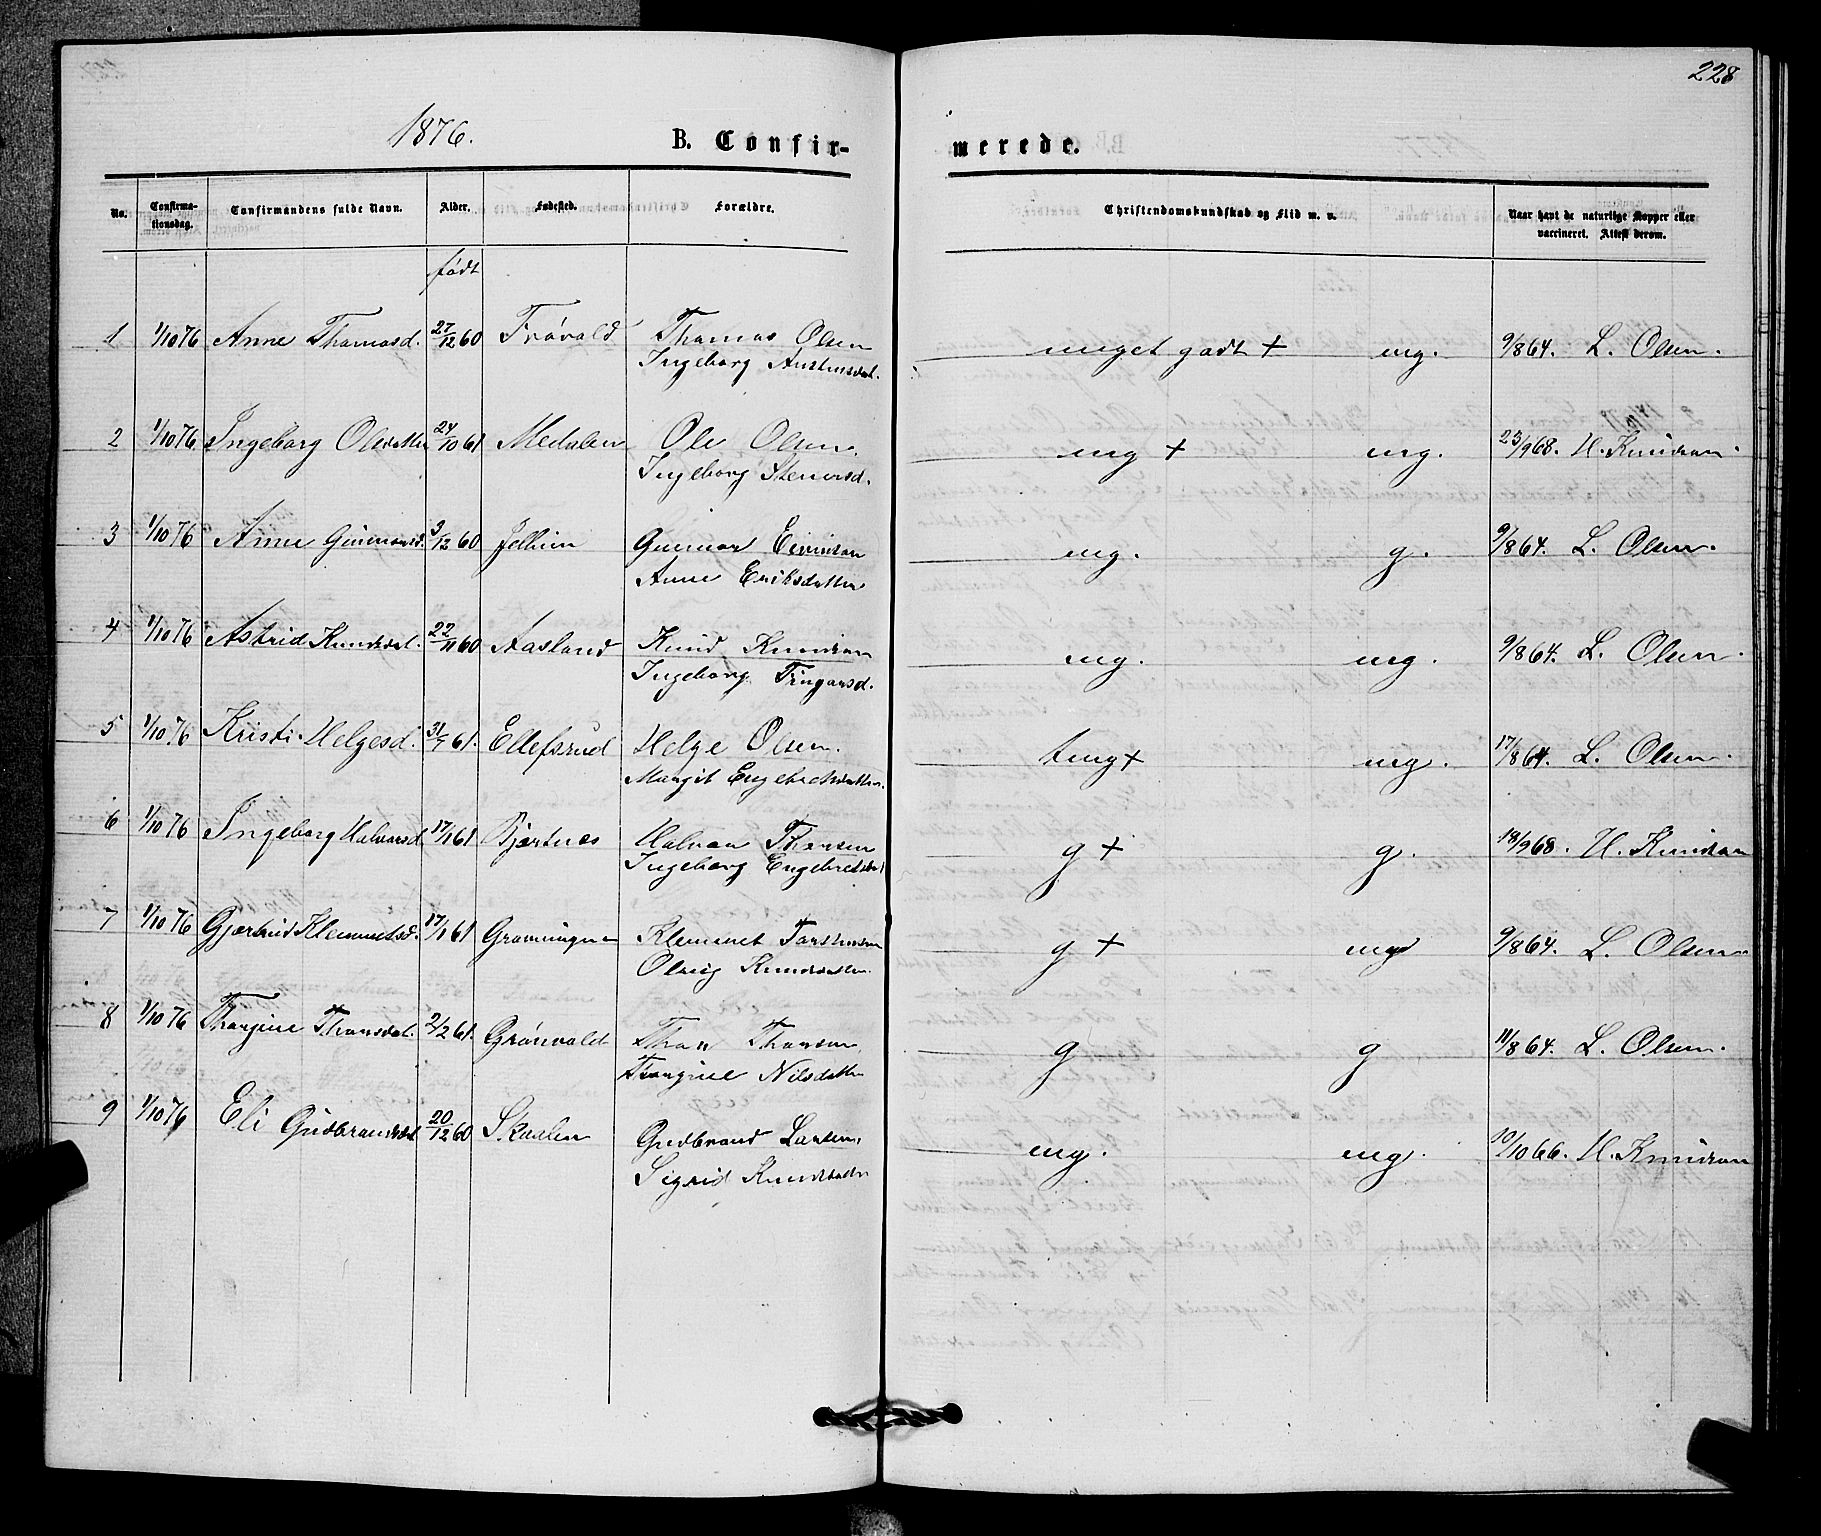 228
1876.
B. Confir-
merede.
No. Confirma-tionsdag. Confirmandens fulde Navn. Alder. Fødested. Forældre. Christendomskundskab og Flid m. v. Naar havt de naturlige Kopper eller vaccineret. Attest derom.
født
1 1/10 76 Anne Thomasd. 27/12 60 Frøvold Thomas Olsen meget godt + mg. 9/8 64. L. Olsen.
Ingeborg
2 1/10 76 Ingeborg Olsdatter 24/10 61 Medalen Ole Olsen mg + mg. 23/9 68. H. Knudson.
Ingeborg Steinersd.
3 1/10 76 Anne Gunnarsd. 3/12 60 Gunnar mg. g. 9/8 64. L. Olsen.
Anne Eriksdatter
4 1/10 76 Astrid Knudsdat. 22/11 60 Aasland Knud Knudson mg. mg. 9/8 64. L. Olsen.
Ingeborg
5 1/10 76 Kristi Helgesd. 31/7 61. Ellefsrud Helge Olsen. tmg + mg. 17/8 64. L. Olsen.
Margit Engebretsdatter.
6 1/10 76 Ingeborg Halvorsd. 17/1 61 Bjørtnæs Halvor Thorsen g + g. 18/9 68. H. Knudson
Ingeborg Engebretsdat
7 1/10 76 Gjærtrud Klemmetsd. 17/1 61 Klemmet Torstensen g + mg 9/8 64. L. Olsen
Olaug Knudsdatter.
8 1/10 76 Thorgine Thorsdat. 2/2 61. Grønvold Thor Thorsen g g 11/8 64. L. Olsen.
Thorgine Nilsdatter
9 1/10 76 Eli Gudbrandsdat 20/12 60 Skaalen Gudbrand Larsen mg. mg. 10/10 66. H. Knudson
Sigrid Knudsdatter